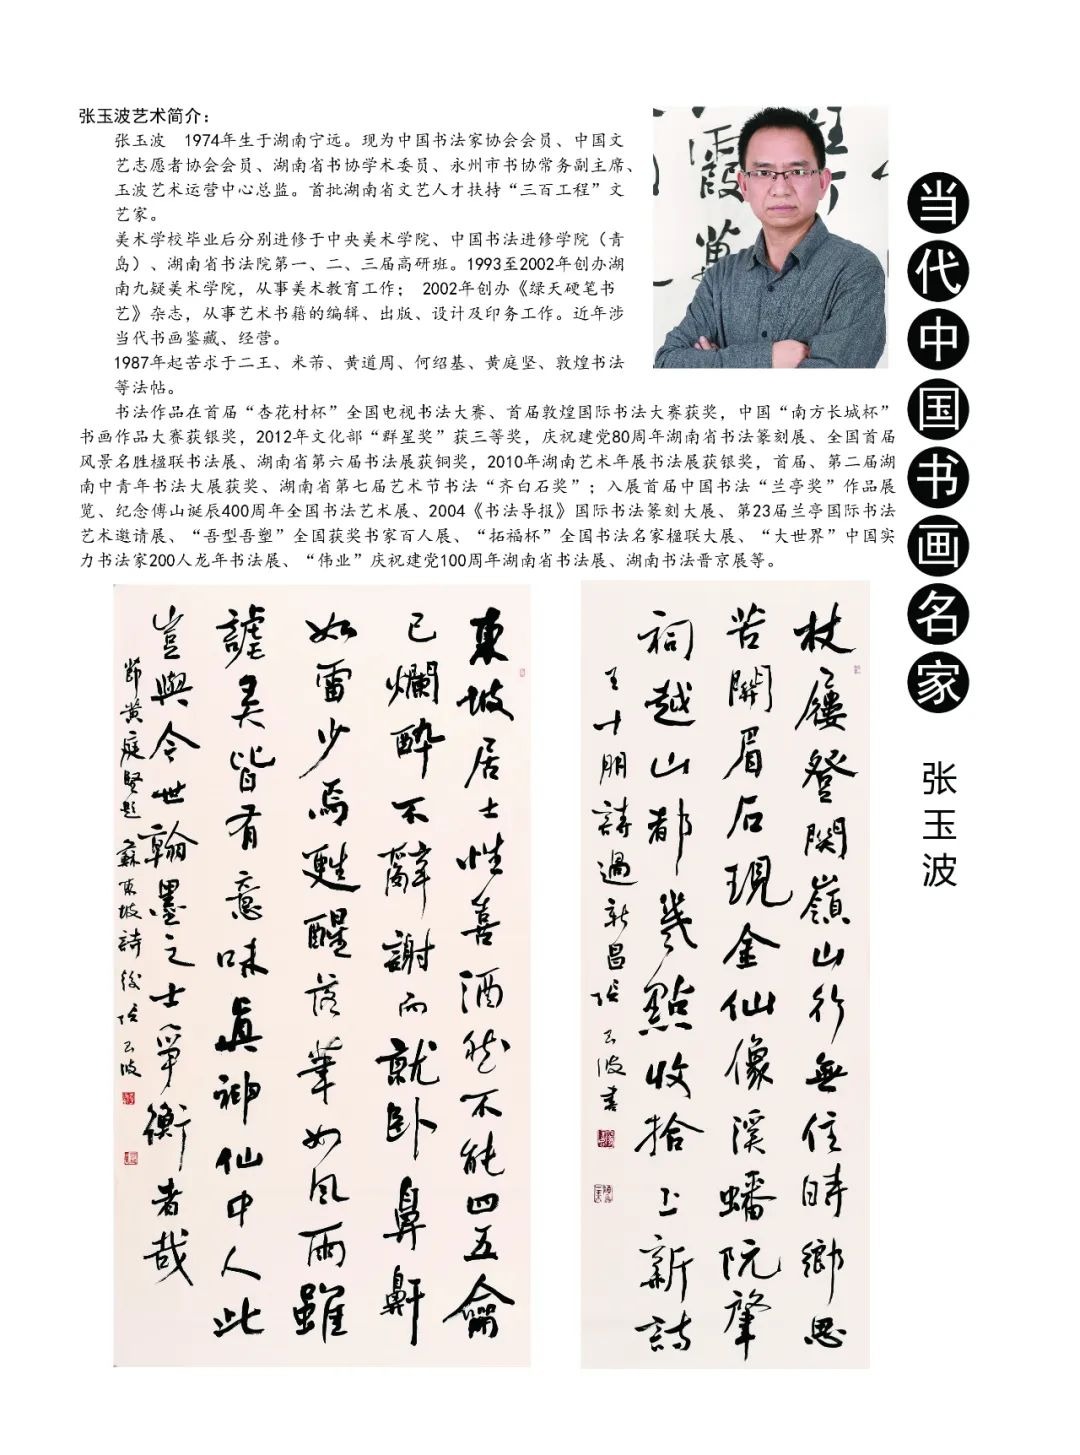 张玉波艺术简介：
张玉波 1974年生于湖南宁远。现为中国书法家协会会员、中国文
艺志愿者协会会员、湖南省书协学术委员、永州市书协常务副主席、
玉波艺术运营中心总监。首批湖南省文艺人才扶持“三百工程”文
艺家。
美术学校毕业后分别进修于中央美术学院、中国书法进修学院（青
岛）、湖南省书法院第一、二、三届高研班。1993至2002年创办湖
南九疑美术学院，从事美术教育工作； 2002年创办《绿天硬笔书
艺》杂志，从事艺术书籍的编辑、出版、设计及印务工作。近年涉
当代书画鉴藏、经营。
1987年起苦求于二王、米芾、黄道周、何绍基、黄庭坚、敦煌书法
等法帖。
书法作品在首届“杏花村杯”全国电视书法大赛、首届敦煌国际书法大赛获奖，中国“南方长城杯”
书画作品大赛获银奖，2012年文化部“群星奖”获三等奖，庆祝建党80周年湖南省书法篆刻展、全国首届
风景名胜楹联书法展、湖南省第六届书法展获铜奖，2010年湖南艺术年展书法展获银奖，首届、第二届湖
南中青年书法大展获奖、湖南省第七届艺术节书法“齐白石奖”；入展首届中国书法“兰亭奖”作品展
览、纪念傅山诞辰400周年全国书法艺术展、2004《书法导报》国际书法篆刻大展、第23届兰亭国际书法
艺术邀请展、“吾型吾塑”全国获奖书家百人展、“拓福杯”全国书法名家楹联大展、“大世界”中国实
力书法家200人龙年书法展、“伟业”庆祝建党100周年湖南省书法展、湖南书法晋京展等。
当代中国书画名家
张玉波
杖屦登關嶺山行無住時鄉思
苦開眉石現金仙像溪蟠阮肇
祠越山都幾點收拾上新詩
王十朋詩過新昌張玉波書
東坡居士性喜酒然不能四五龠
已爛醉不辭謝而就卧鼻鼾
如雷少焉甦醒落筆如風雨雖
謔美皆有意味真神仙中人此
豈與今世翰墨之士爭衡者哉
節黃庭堅題蘇東坡詩後張玉波